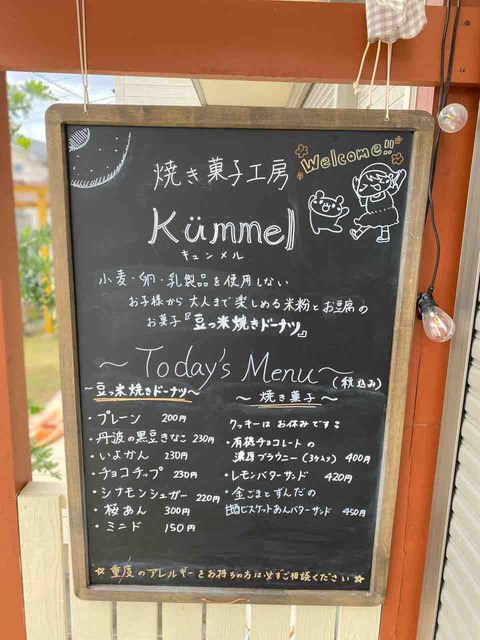 Welcome!!
焼き菓子工房
Kümmel
キュンメル
小麦・卵・乳製品を使用しない
お子様から大人まで楽しめる米粉とお豆腐の
お菓子『豆っ米焼きドーナツ』
～Today's Menu～(税込み)
～豆っ米焼きドーナツ～
・プレーン 200円
・丹波の黒豆きなこ 230円
・いよかん 230円
・チョコチップ 230円
・シナモンシュガー 220円
・桜あん 300円
・ミニド 150円
～焼き菓子～
クッキーはお休みです
・有機チョコレートの
濃厚ブラウニー(3ケ入り) 400円
・レモンバターサンド 420円
・金ごまとずんだの
ビスケットあんバターサンド 450円
☆重度のアレルギーをお持ちの方は必ずご相談ください☆